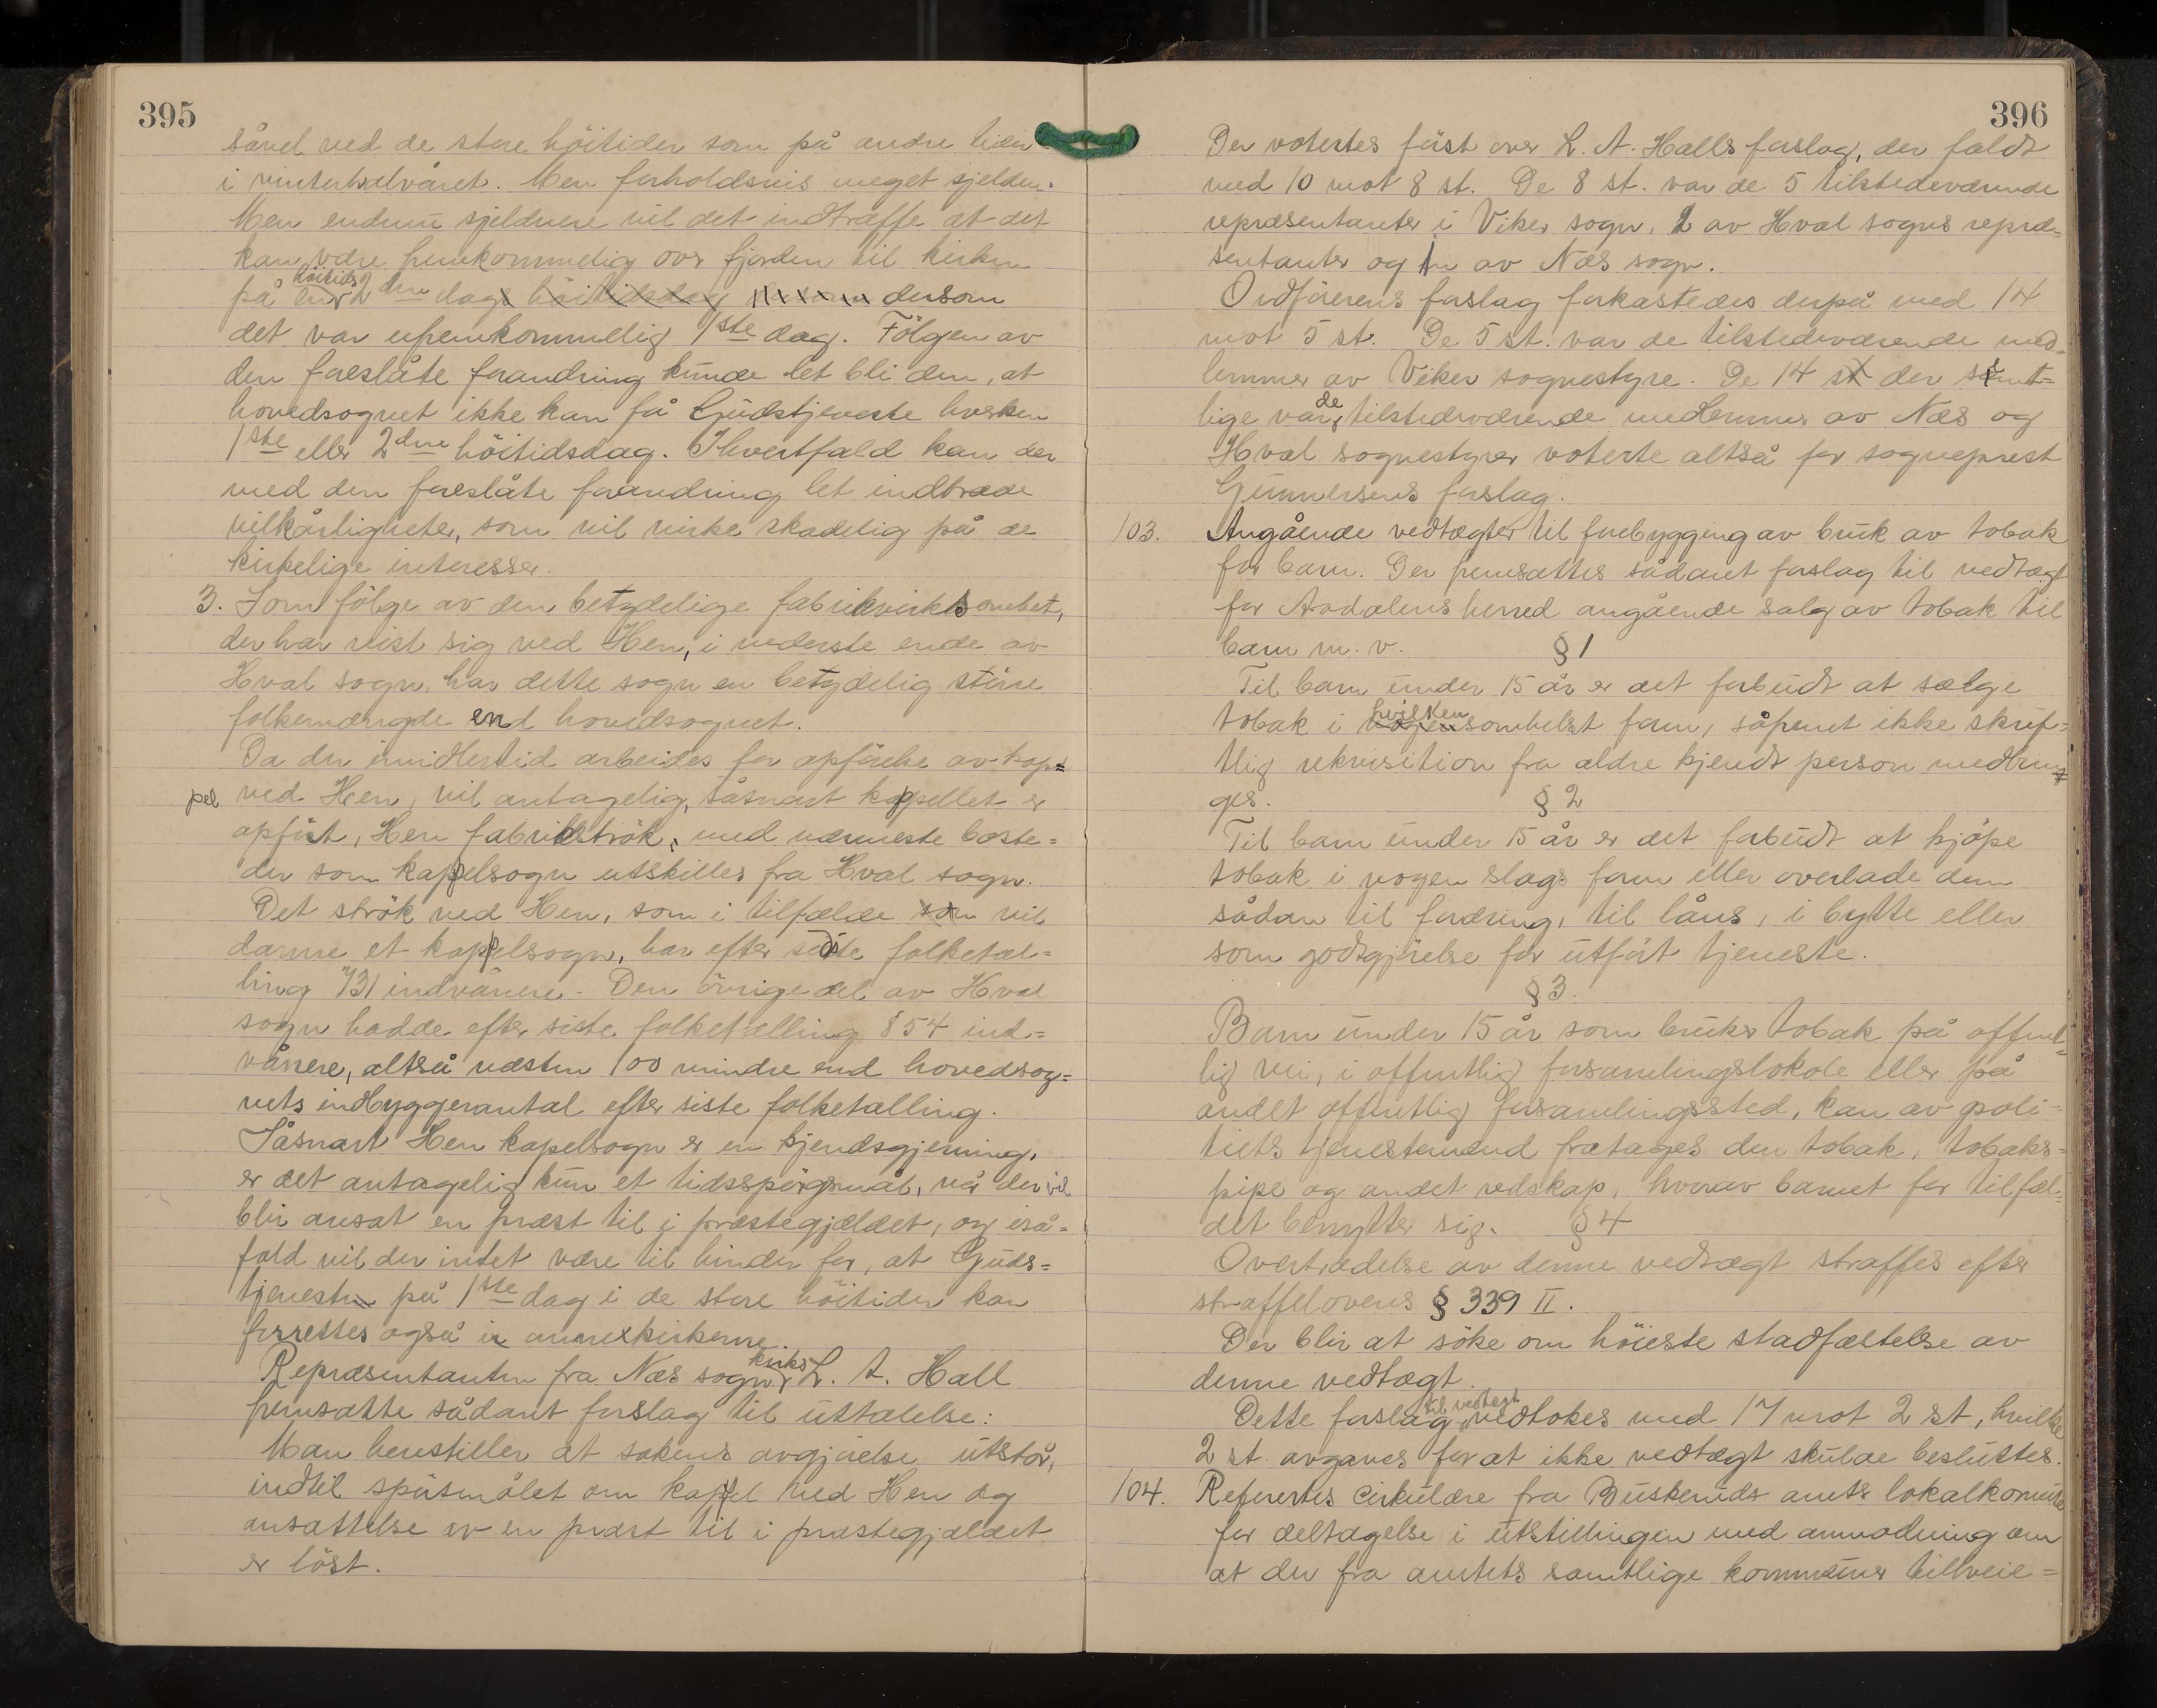 395
såvel ved de store höitider som på andre tider
i vinterhalvåret. Men forholdsvis meget sjelden.
Men endnu sjeldnere vil det indtræffe at det
kan være fremkommelig over fjorden til kirken
höitids
på en 2den dag dersom
det var ufremkommelig 1ste dag. Fölgen av
den foreslåte forandring kunde let bli den, at
hovedsognet ikke kan få Gudstjeneste hverken
1ste eller 2den höitidsdag. Ihvertfald kan der
med den foreslåte forandring let indtræde
vilkårligheter, som vil virke skadelig på de
kirkelige interesser.
3. Som fölge av den betydelige fabrikvirksomhet,
der har reist sig ved Hen, i nederste ende av
Hval sogn, har dette sogn en betydelig större
folkemængde end hovedsognet.
Da der imidlertid arbeides for opförelse av kap=
pel ved Hen, vil antagelig, såsnart kapellet er
opfört, Hen fabrikströk, med nærmeste boste=
der som kapelsogn utskilles fra Hval sogn.
Det strök ved Hen, som i tilfælde vil
danne et kapelsogn, har efter siste folketæl=
ling 731 indvånere. Den övrige del av Hval
sogn hadde efter siste folketælling 854 ind=
vånere, altså næsten 100 mindre end hovedsog=
nets indbyggerantal efter siste folketælling.
Såsnart Hen kapelsogn er en kjendsgjerning,
er det antagelig kun et tidsspörgsmål, når der vil
bli ansat en præst til i præstegjældet, og iså=
fald vil der intet være til hinder for, at Guds=
tjeneste på 1ste dag i de store höitider kan
forrettes også i annexkirkerne.
Repræsentanten fra Næs sogn L. A. Hall
fremsatte sådant forslag til uttalelse:
Man henstiller at sakens avgjörelse utstår,
indtil spörsmålet om kapel ved Hen og
ansættelse av en præst til i præstegjældet
er löst.
396
Der votertes först over L. A. Halls forslag, der faldt
med 10 mot 8 st. De 8 st. var de 5 tilstedeværende
repræsentanter i Viker sogn, 2 av Hval sogns repræ=
sentanter og 1 av Næs sogn.
Ordförerens forslag forkastedes derpå med 14
mot 5 st. De 5 st. var de tilstedeværende med=
lemmer av Viker sognestyre. De 14 st der samt=
lige var de tilstedeværende medlemmer av Næs og
Hval sognestyrer voterte altså for sogneprest
Gunnersens forslag.
103. Angående vedtægter til forebygging av bruk av tobak
for barn. Der fremsattes sådant forslag til vedtægt
for Aadalens herred angående salg av tobak til
barn m. v. § 1
Til barn under 15 år er det forbudt at sælge
hvilken
tobak i somhelst form, såfremt ikke skrif=
tlig rekvisition fra ældre kjendt person medbrin=
ges. § 2
Til barn under 15 år er det forbudt at kjöpe
tobak i nogen slags form eller overlade dem
sådan til foræring, til låns, i bytte eller
som godtgjörelse for utfört tjeneste.
§ 3.
Barn under 15 år som bruker tobak på offent=
lig vei, i offentlig forsamlingslokale eller på
andet offentlig forsamlingssted, kan av poli=
tiets tjenestemænd fratages den tobak, tobaks=
pipe og andet redskap, hvorav barnet for tilfæl=
det benytter sig. § 4
Overtrædelse av denne vedtægt straffes efter
straffelovens § 339 II.
Der blir at söke om höieste stadfæstelse av
denne vedtægt.
til vedtægt
Dette forslag vedtokes med 17 mot 2 st, hvilke
2 st. avgaves for at ikke vedtægt skulde besluttes.
104. Referertes cirkulære fra Buskeruds amts lokalkomite
for deltagelse i utstillingen med anmodning om
at der fra amtets samtlige kommuner tilveie=